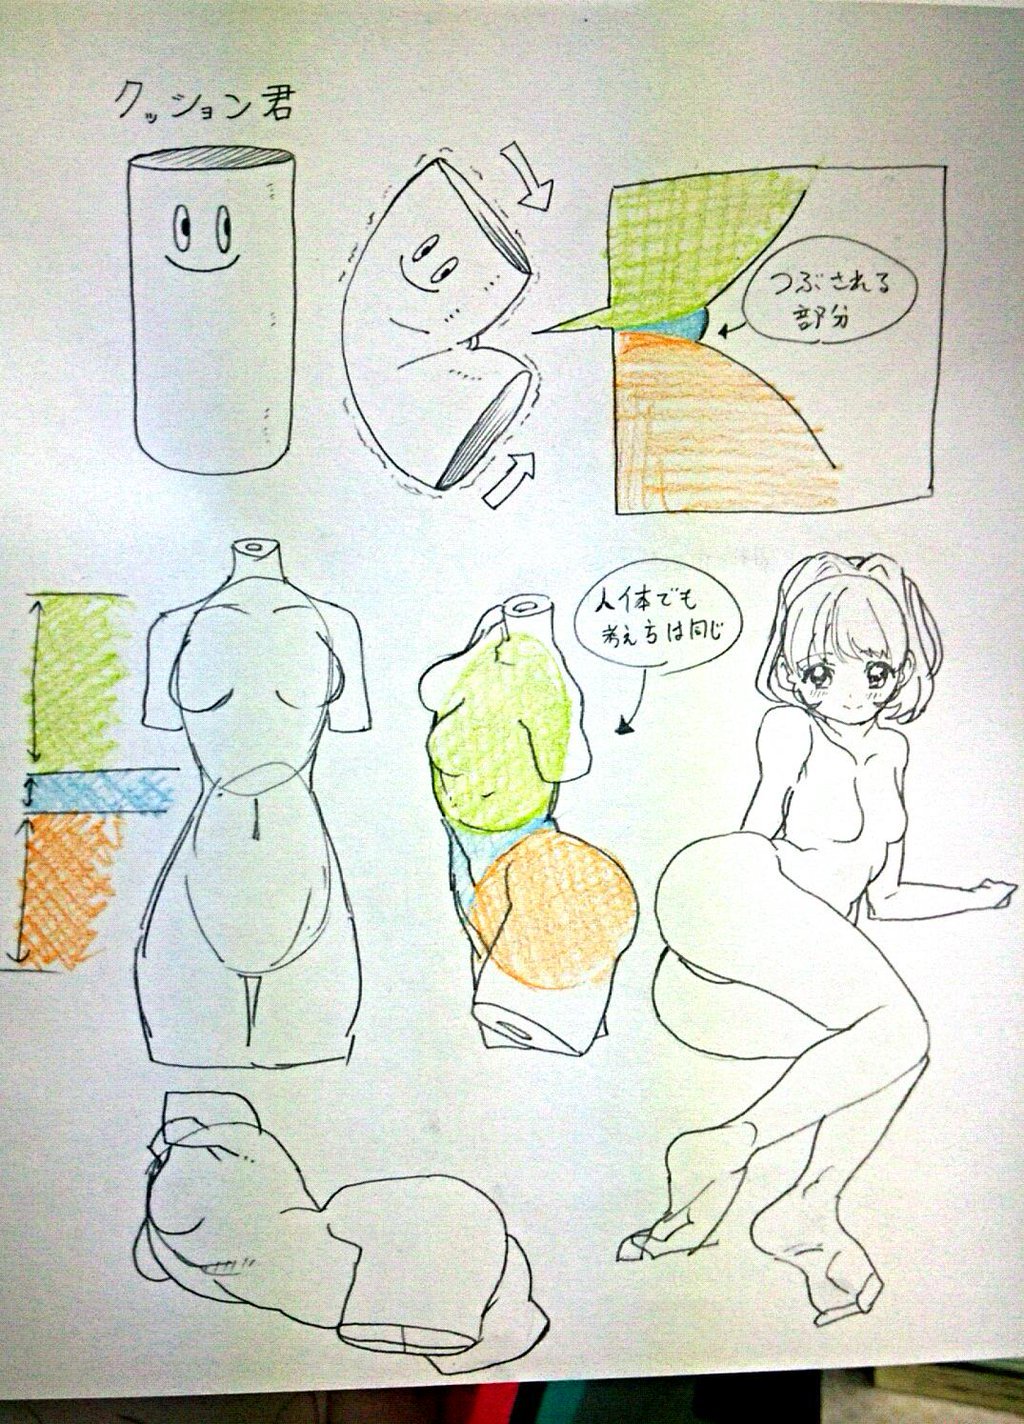 クッション君
つぶされる
部分
人体でも
考え方は同じ